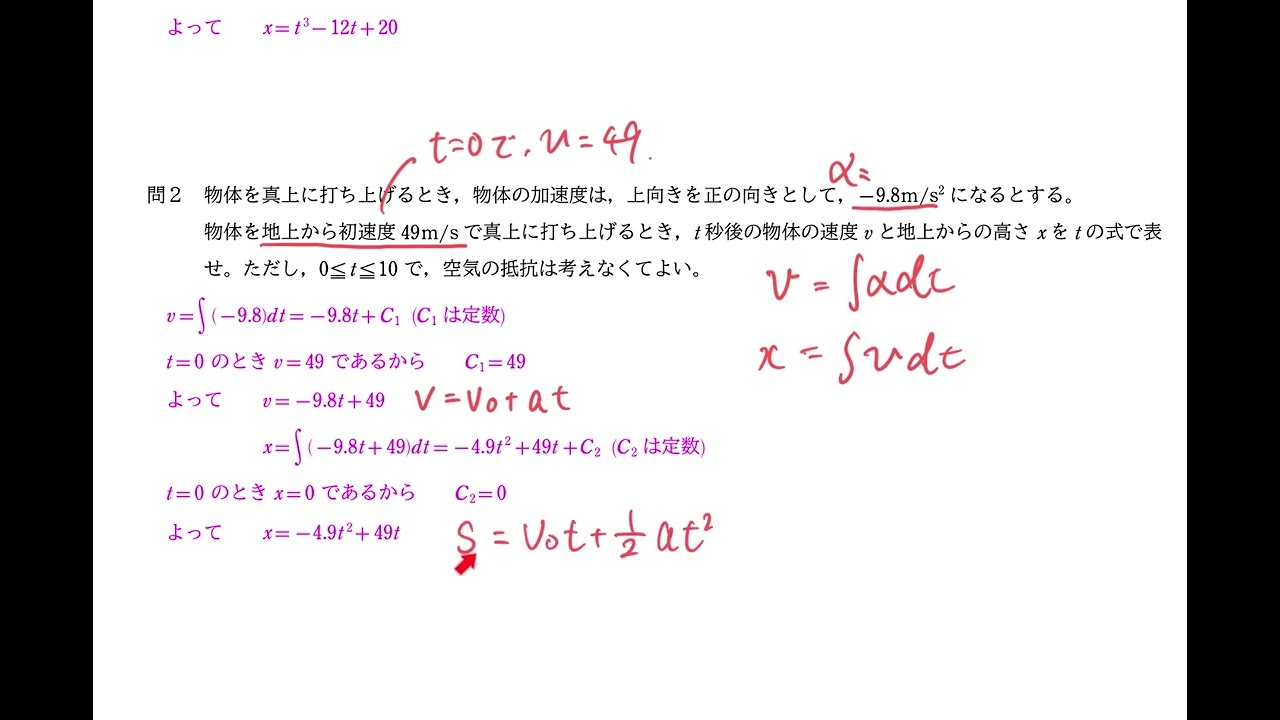 よって x=t³−12t+20
t=0で、v=49.
α=
問2 物体を真上に打ち上げるとき，物体の加速度は，上向きを正の向きとして，−9.8m/s² になるとする。
物体を地上から初速度 49m/s で真上に打ち上げるとき，t 秒後の物体の速度 v と地上からの高さ x を t の式で表
せ。ただし，0≦t≦10 で，空気の抵抗は考えなくてよい。
v=∫αdt
v=∫(−9.8)dt=−9.8t+C₁ (C₁ は定数)
x=∫vdt
t=0 のとき v=49 であるから C₁=49
よって v=−9.8t+49 v=v₀+at
x=∫(−9.8t+49)dt=−4.9t²+49t+C₂ (C₂ は定数)
t=0 のとき x=0 であるから C₂=0
よって x=−4.9t²+49t S=v₀t+½at²